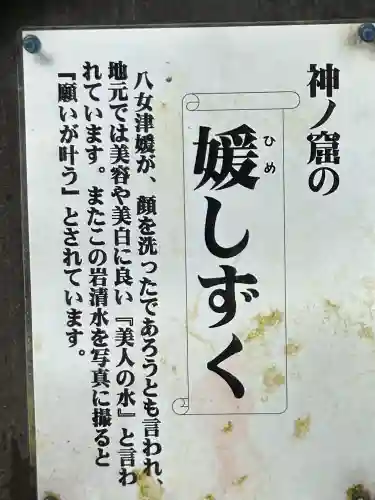 神ノ窟の
媛しずく
ひめ
八女津媛が、顔を洗ったであろうとも言われ、
地元では美容や美白に良い『美人の水』と言わ
れています。またこの岩清水を写真に撮ると
『願いが叶う』とされています。